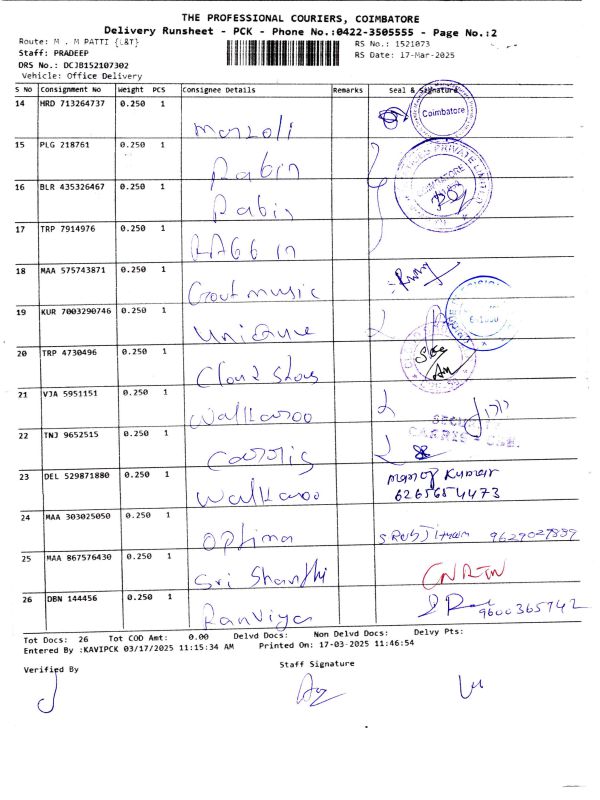 THE PROFESSIONAL COURIERS, COIMBATORE
Delivery Runsheet - PCK - Phone No.:0422-3505555 - Page No.:2
Route: M . M PATTI {L&T} RS No.: 1521073
Staff: PRADEEP RS Date: 17-Mar-2025
DRS No.: DCJB152107302
Vehicle: Office Delivery
S No Consignment No Weight PCS Consignee Details Remarks Seal & Signature
14 HRD 713264737 0.250 1 Coimbatore
15 PLG 218761 0.250 1 Rabin PRIVATE
16 BLR 435326467 0.250 1 Rabin COIMBATORE
17 TRP 7914976 0.250 1
18 MAA 575743871 0.250 1 music
19 KUR 7003290746 0.250 1 Unique
20 TRP 4730496 0.250 1
21 VJA 5951151 0.250 1 Walkaroo
22 TNJ 9652515 0.250 1
23 DEL 529871880 0.250 1 Walkaroo Manoj Kumar
6265654473
24 MAA 303025050 0.250 1 Optima
25 MAA 867576430 0.250 1 Sri Shanthi
26 DBN 144456 0.250 1 Ranviya 9600365742
Tot Docs: 26 Tot COD Amt: 0.00 Delvd Docs: Non Delvd Docs: Delvy Pts:
Entered By :KAVIPCK 03/17/2025 11:15:34 AM Printed On: 17-03-2025 11:46:54
Verified By Staff Signature